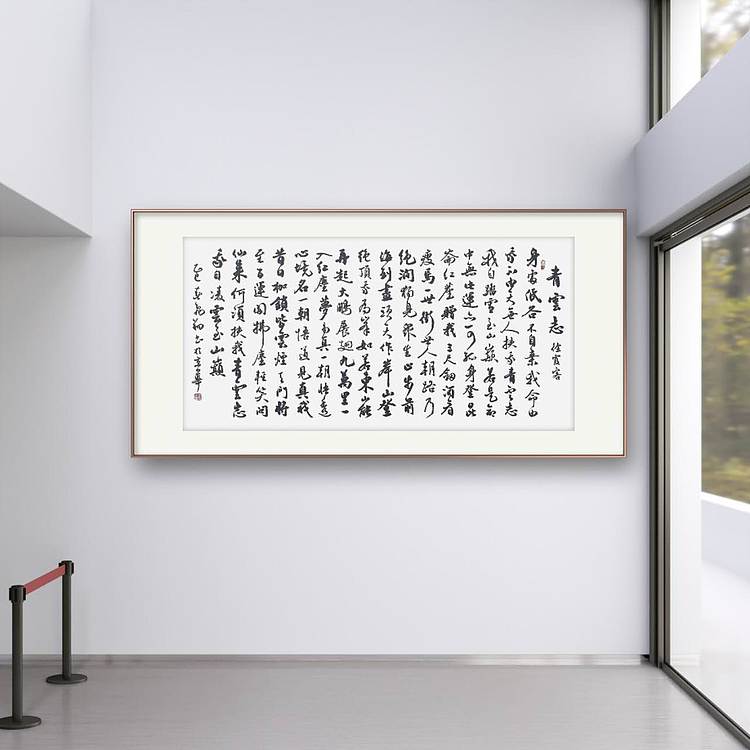 青雲志 徐霞客
身處低谷不自棄我命由
我不由天無人扶我青雲志
我自踏雪至山巔若是命
中無此運亦可孤身登昆
崙紅塵贈我三尺劍酒肴
瘦馬一世街世人朝路乃
絕澗獨見眾生止步前
海到盡頭天作岸山登
絕頂我為峯如若東山能
再起大鵬展翅九萬里一
入紅塵夢易真一朝悟透
心境名一朝悟道見真我
昔日枷鎖皆雲煙天門將
至百運開拂塵輕笑問
仙桑何須扶我青雲志
我自凌雲至山巔
乙巳夏 書於京華